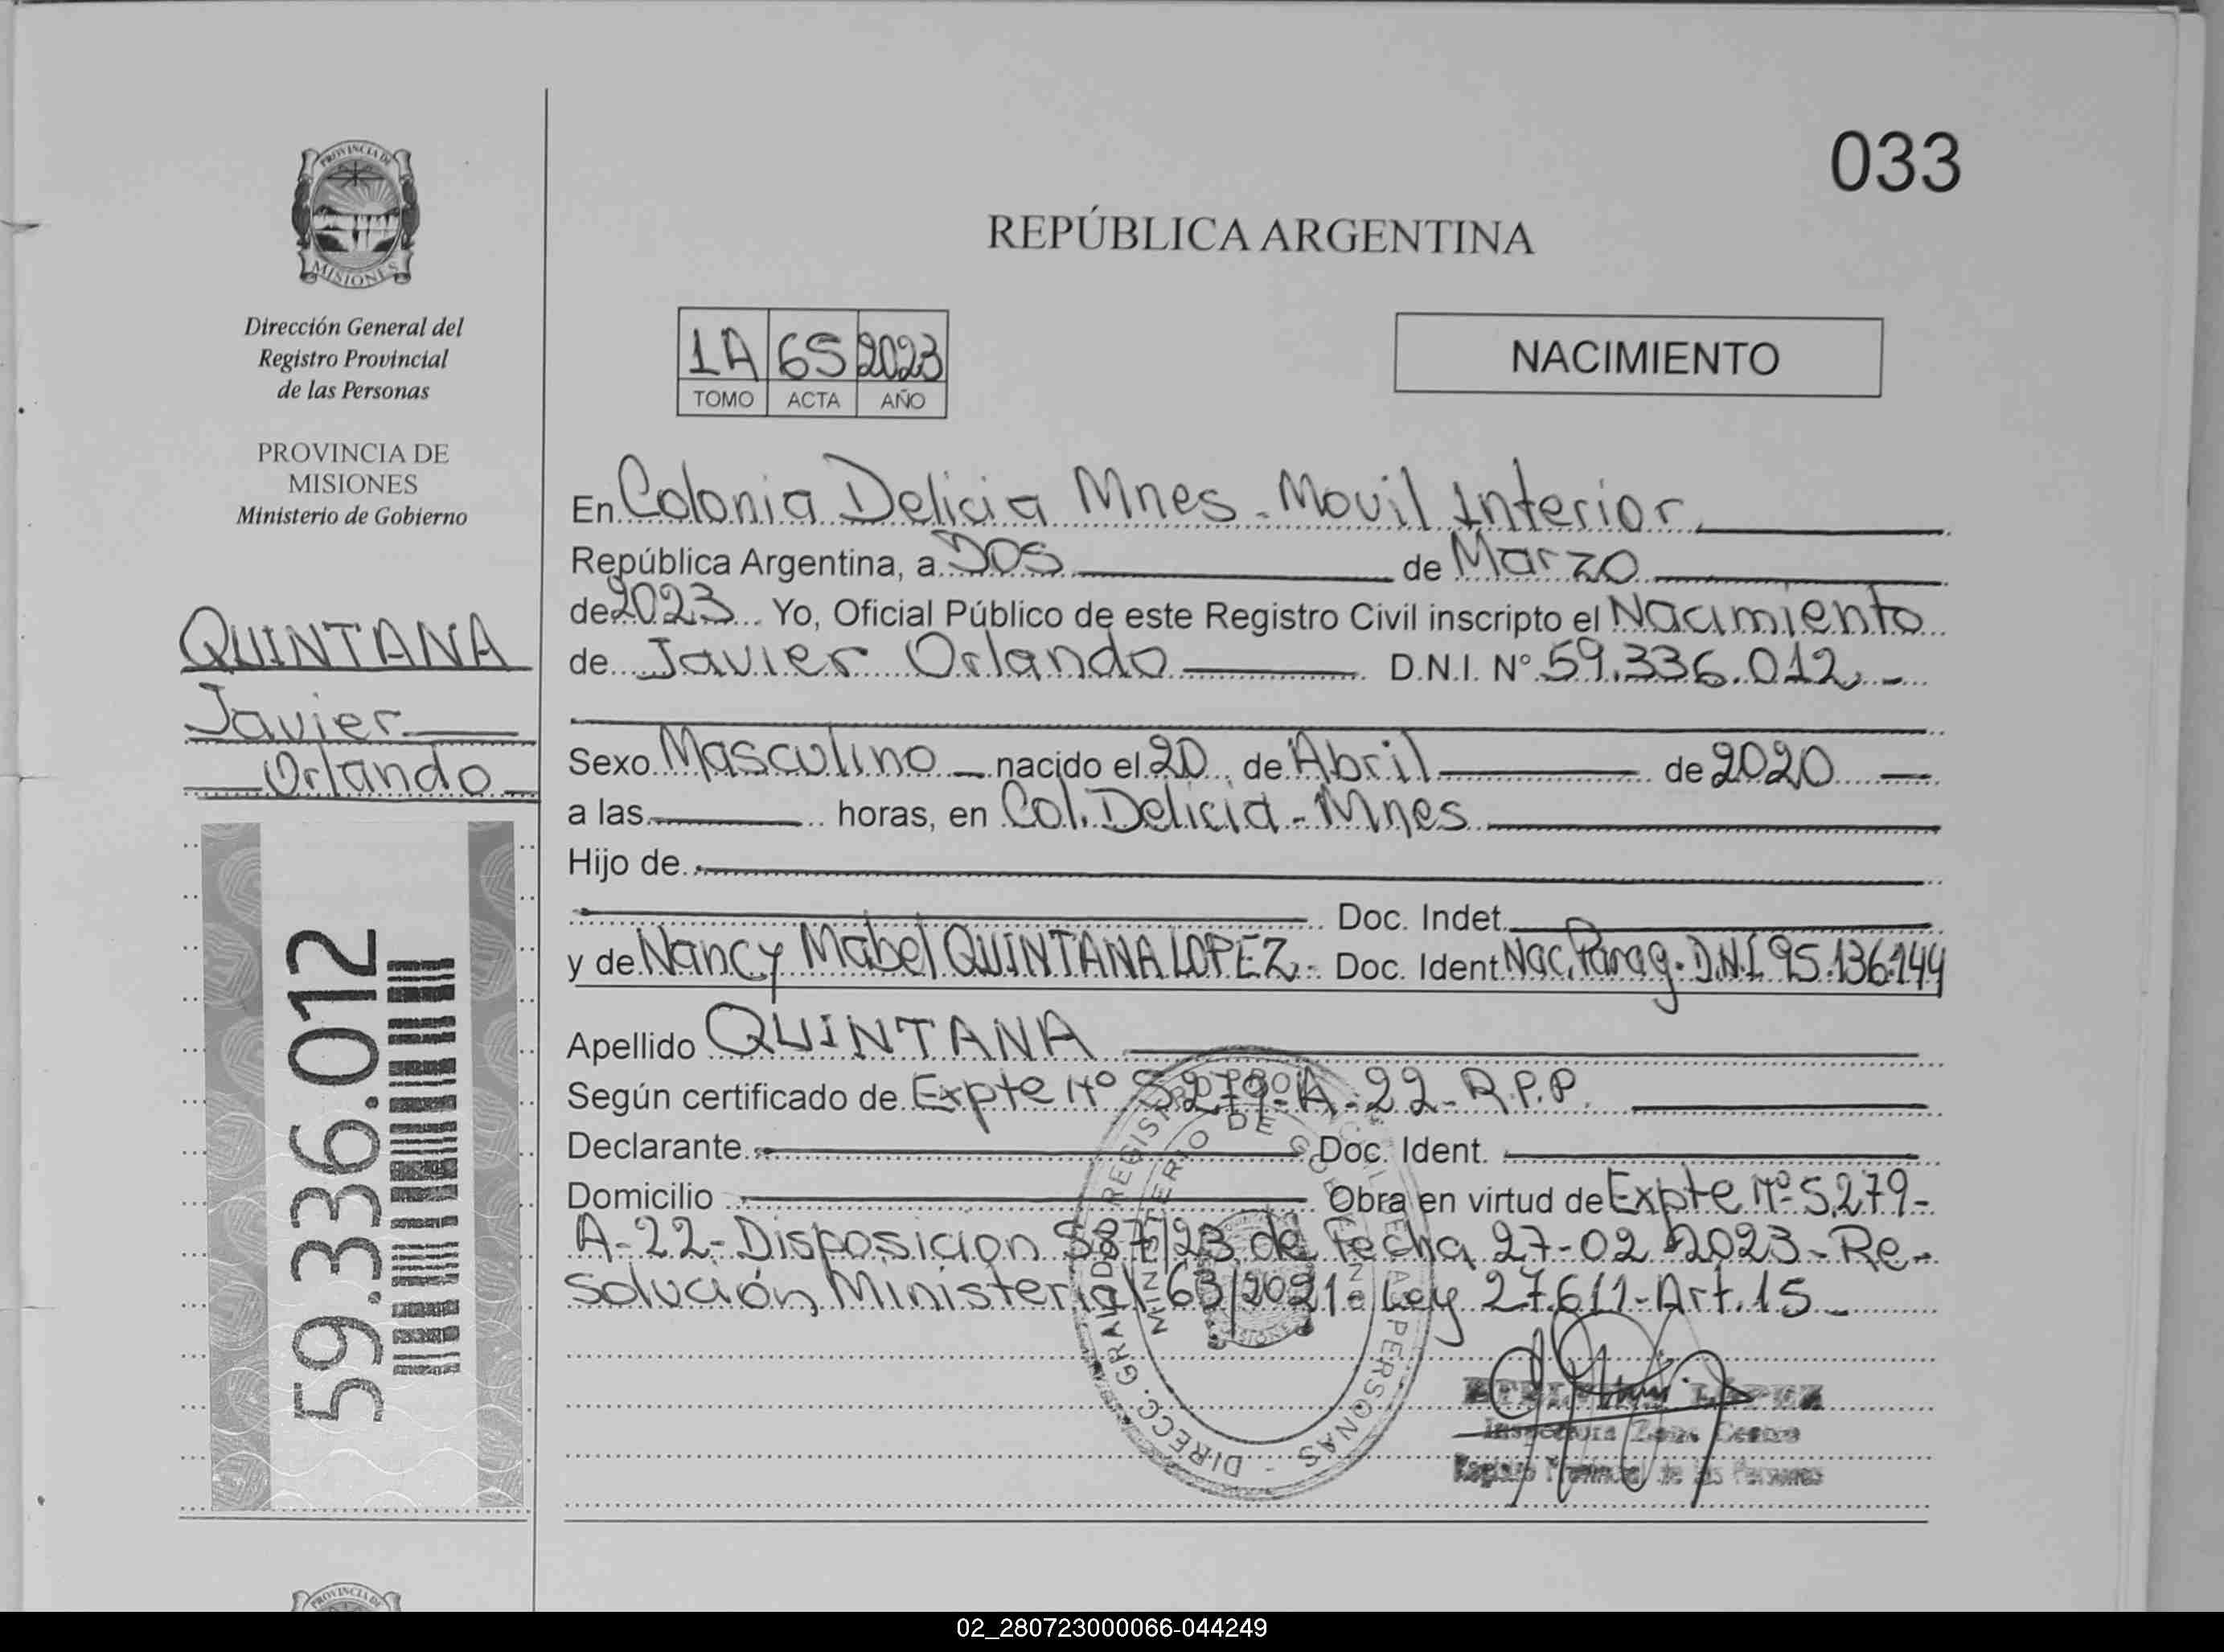 033
PROVINCIA DE
MISIONES
Dirección General del
Registro Provincial
de las Personas
PROVINCIA DE
MISIONES
Ministerio de Gobierno
QUINTANA
Javier
Orlando
59.336.012
REPÚBLICA ARGENTINA
1A 65 2023
TOMO ACTA AÑO
NACIMIENTO
En Colonia Delicia Mnes - Movil Interior
República Argentina, a Dos de Marzo
de 2023 Yo, Oficial Público de este Registro Civil inscripto el Nacimiento
de Javier Orlando D.N.I. N° 59.336.012 -
Sexo Masculino nacido el 20 de Abril de 2020
a las horas, en Col. Delicia - Mnes
Hijo de
Doc. Indet.
y de Nancy Mabel QUINTANA LOPEZ - Doc. Ident Nac. Parag. D.N.I 95.136.144
Apellido QUINTANA
Según certificado de Expte N° 5279-A-22-R.P.P.
Declarante Doc. Ident.
Domicilio Obra en virtud de Expte N° 5.279-
A-22-Disposicion 587/23 de Fecha 27-02-2023-Re-
solución Ministerial 63/2021- Ley 27.611-Art.15
DIRECC. GRAL. DE REGISTRO PERSONAS
MINISTERIO DE GOBIERNO
LOPEZ
Inspectora Zona Centro
Registro Provincial de las Personas
PROVINCIA DE
02_280723000066-044249